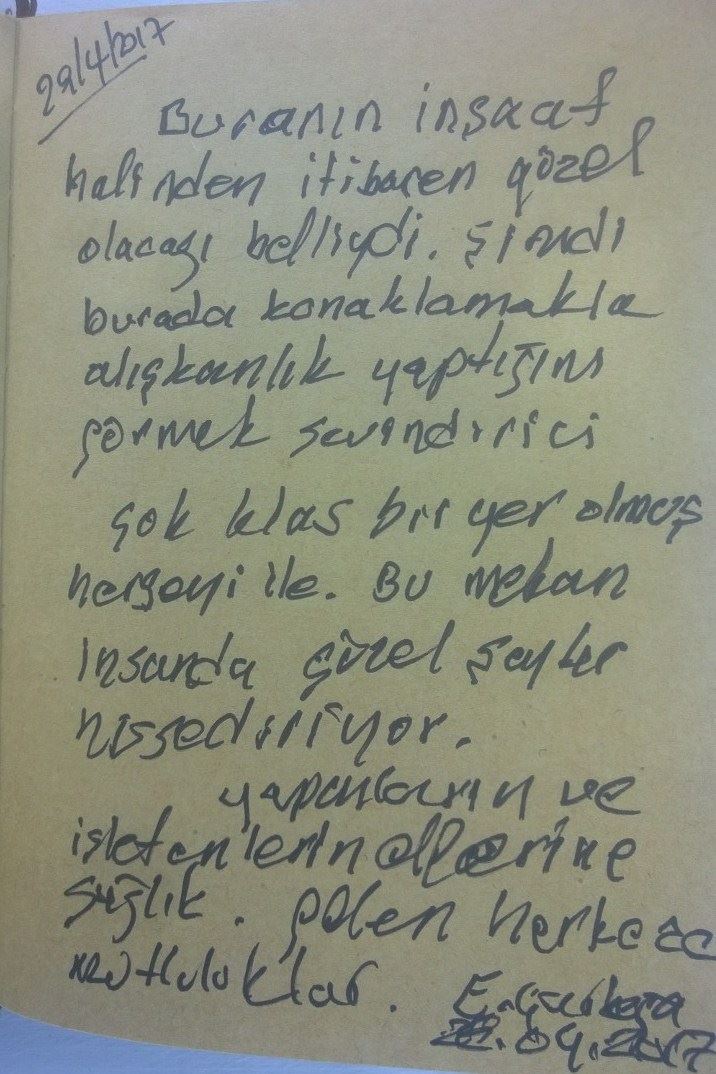 29/4/2017
Buranın inşaat
halinden itibaren güzel
olacağı belliydi. Şimdi
burada konaklamakla
alışkanlık yaptığını
görmek sevindirici
çok klas bir yer olmuş
herşeyi ile. Bu mekan
insanda güzel şeyler
hissediriyor.
yapanların ve
işletenlerin ellerine
sağlık. gelen herkese
mutluluklar.
29.04.2017